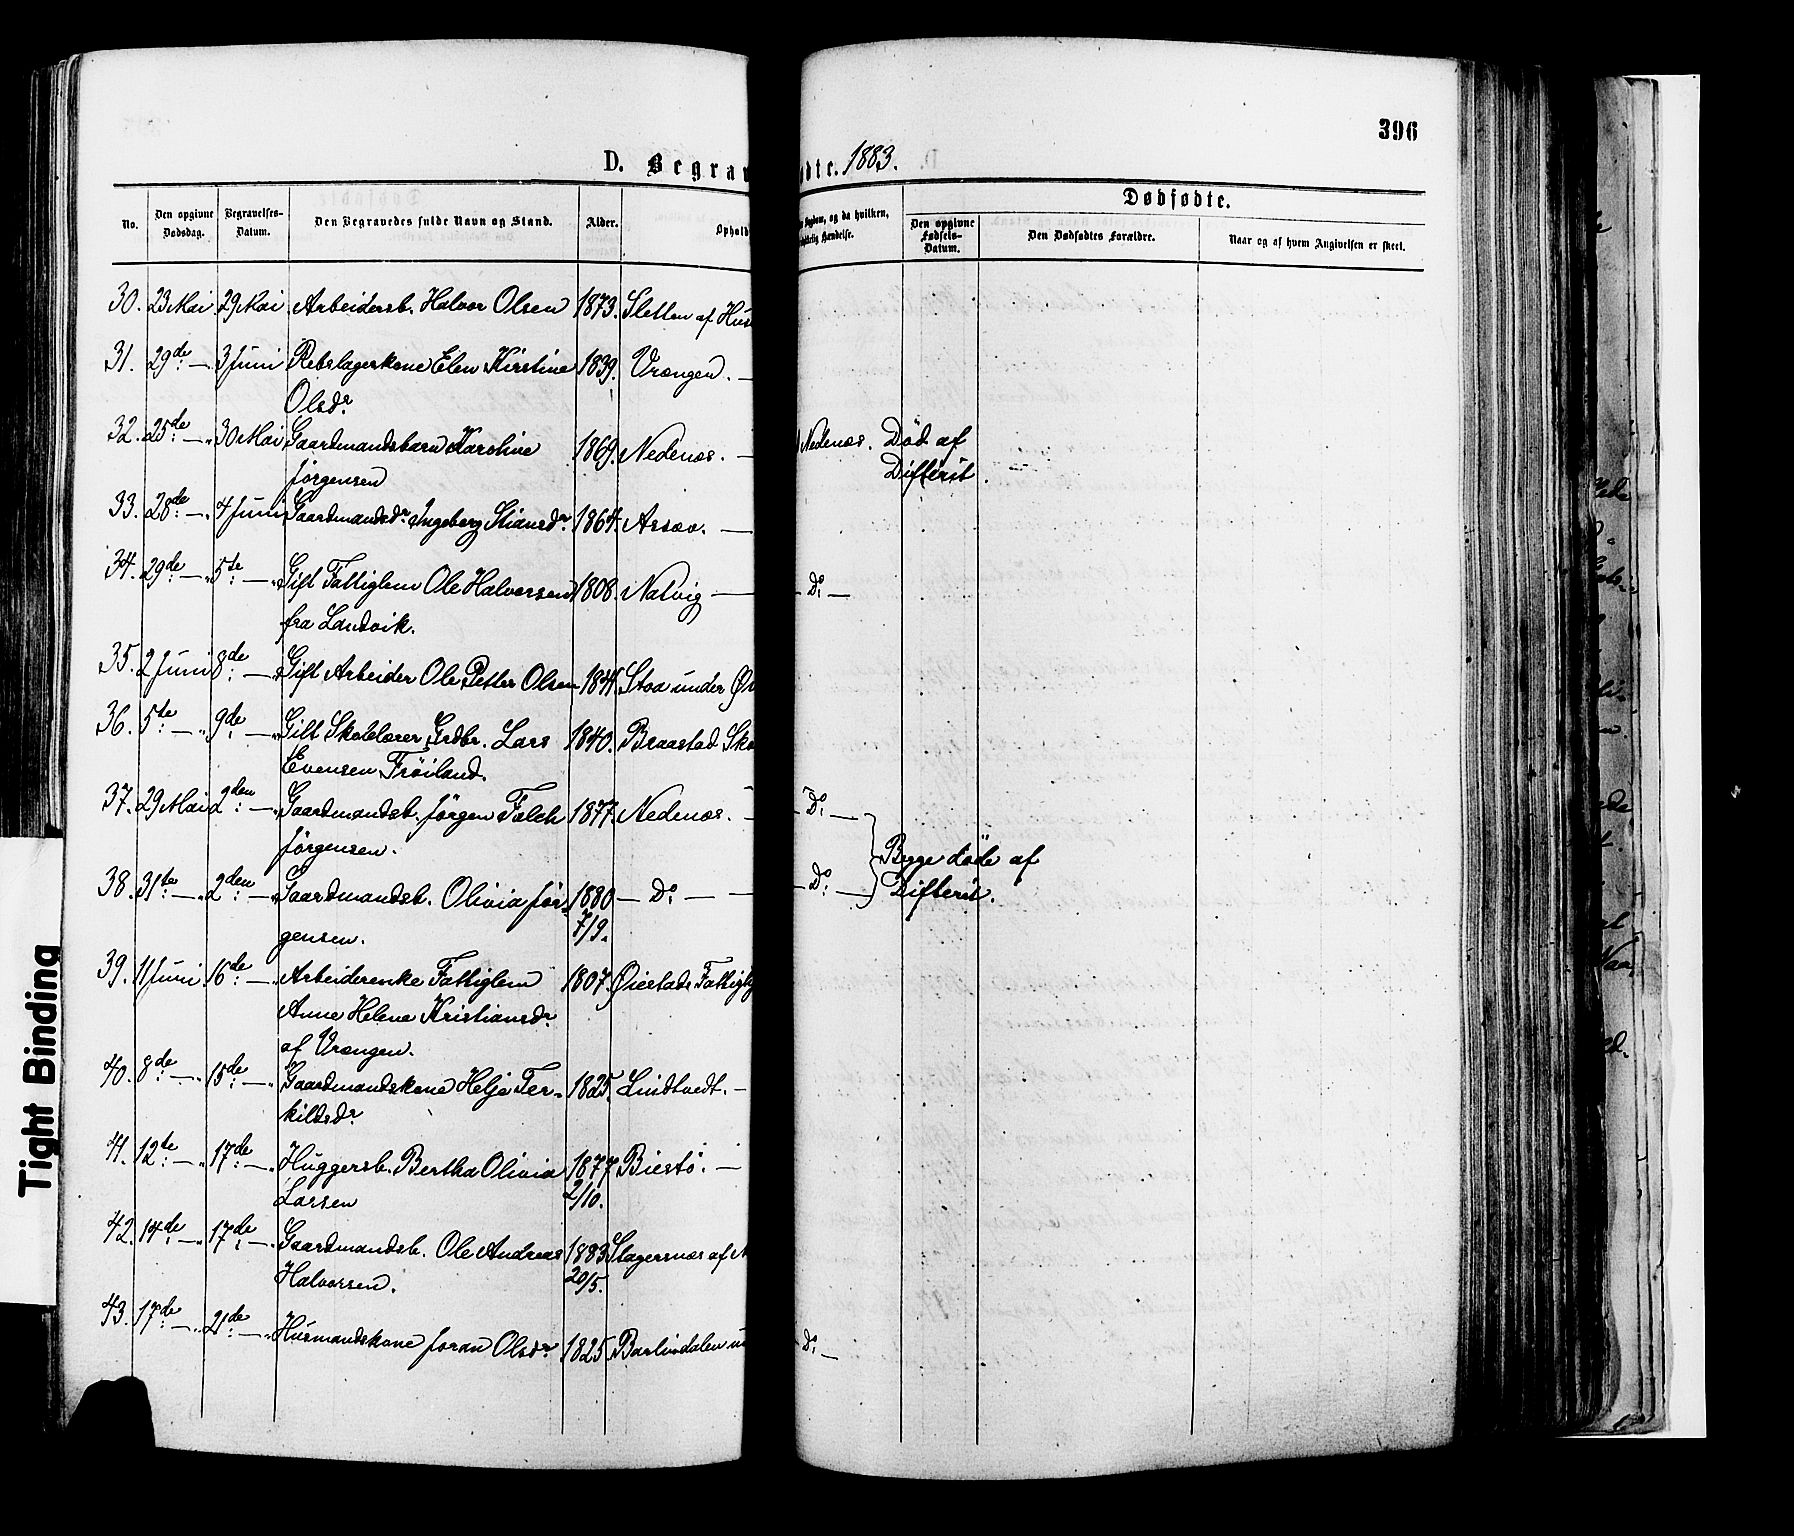 396
D. Begrav
dte. 1883.
Dødfødte.
No. Den opgivne Dødsdag. Begravelses-Datum. Den Begravedes fulde Navn og Stand. Alder. Ophold
Sygdom, og da hvilken, Hændelse. Den opgivne Fødsels-Datum. Den Dødfødtes Forældre. Naar og af hvem Angivelsen er skeet.
30. 23 Mai 29 Mai Arbeidersb. Halvor Olsen 1873. Sletten af Hus
31. 29de: — 3 Juni Rebslagerkone Elen Kirstine 1839. Vrængen. —
Olsdr.
32. 25de: — 30 Mai Gaardmandsbarn Karoline 1869. Nedenæs. — Nedenæs. Død af
Jørgensen Difterit.
33. 28de: — 4 Juni Gaardmandsdr. Ingeborg Stiansdr. 1864. Assæv. —
34. 29de: — 5te: — Gift Fattiglem Ole Halvorsen 1808. Natvig — — Do: —
fra Landvik.
35. 2 Juni 8de: — Gift Arbeider Ole Petter Olsen 1841. Stoa under Øi
36. 5te: — 9de: — Gift Skolelærer, Grdbr. Lars 1840. Braastad Sko
Evensen Frøiland.
37. 29 Mai 2den: — Gaardmandsb. Jørgen Falck 1877. Nedenæs. — — Do: —
Jørgensen.
Begge døde af
38. 31te: — 2den: — Gaardmandsb. Olivia Jør- 1880 — Do: — — — Do: — Difterit.
gensen. 7/9.
39. 11 Juni 16de: — Arbeiderenke Fattiglem 1807. Øiestads Fattig
Anne Helene Kristiansdr.
af Vrængen.
40. 8de: — 15de: — Gaardmandskone Helje Ter- 1825. Lindtvedt. —
kildsdr.
41. 12te: — 17de: — Huggersb. Bertha Olivia 1877 Biestø. —
Larsen 2/10.
42. 14de: — 17de: — Gaardmandsb. Ole Andreas 1883 Slagersnæs af
Halvorsen. 20/5.
43. 17de: — 21de: — Husmandskone Joran Olsdr. 1825. Barlindalen un — Do: —
Tight Binding